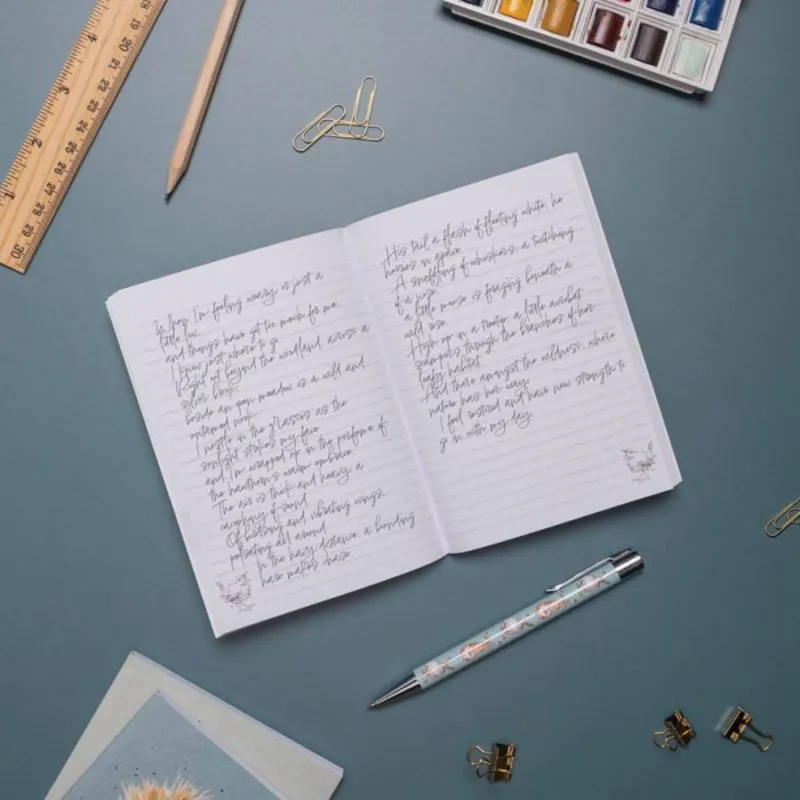 When I'm feeling weary is just a
little luc
and things have got too much for me,
I know just where to go
Right out beyond the woodland, across a
silver brook
beside an open meadow is a wild and
untamed nook
I nestle in the grasses as the
sunlight strokes my face
and I'm wrapped up in the perfume of
the hawthorn's warm embrace
The air is thick and heavy, a
cacophony of sound
Of buzzing and vibrating wings,
pulsating all around
In the hazy distance, a bounding
hare makes chase
His tail a flash of fleeting white, he
hones in grace
A snuffling of whiskers, a twitching
of a nose
a little mouse is foraging beneath a
wild rose
High up in a treetop a little acrobat
scampers through the branches of her
leafy habitat
And there amongst the wildness, where
nature has her way
I feel restored and have new strength to
go on with my day.
4
3
2
1
18
19
20
21
22
23
24
25
26
27
28
29
30